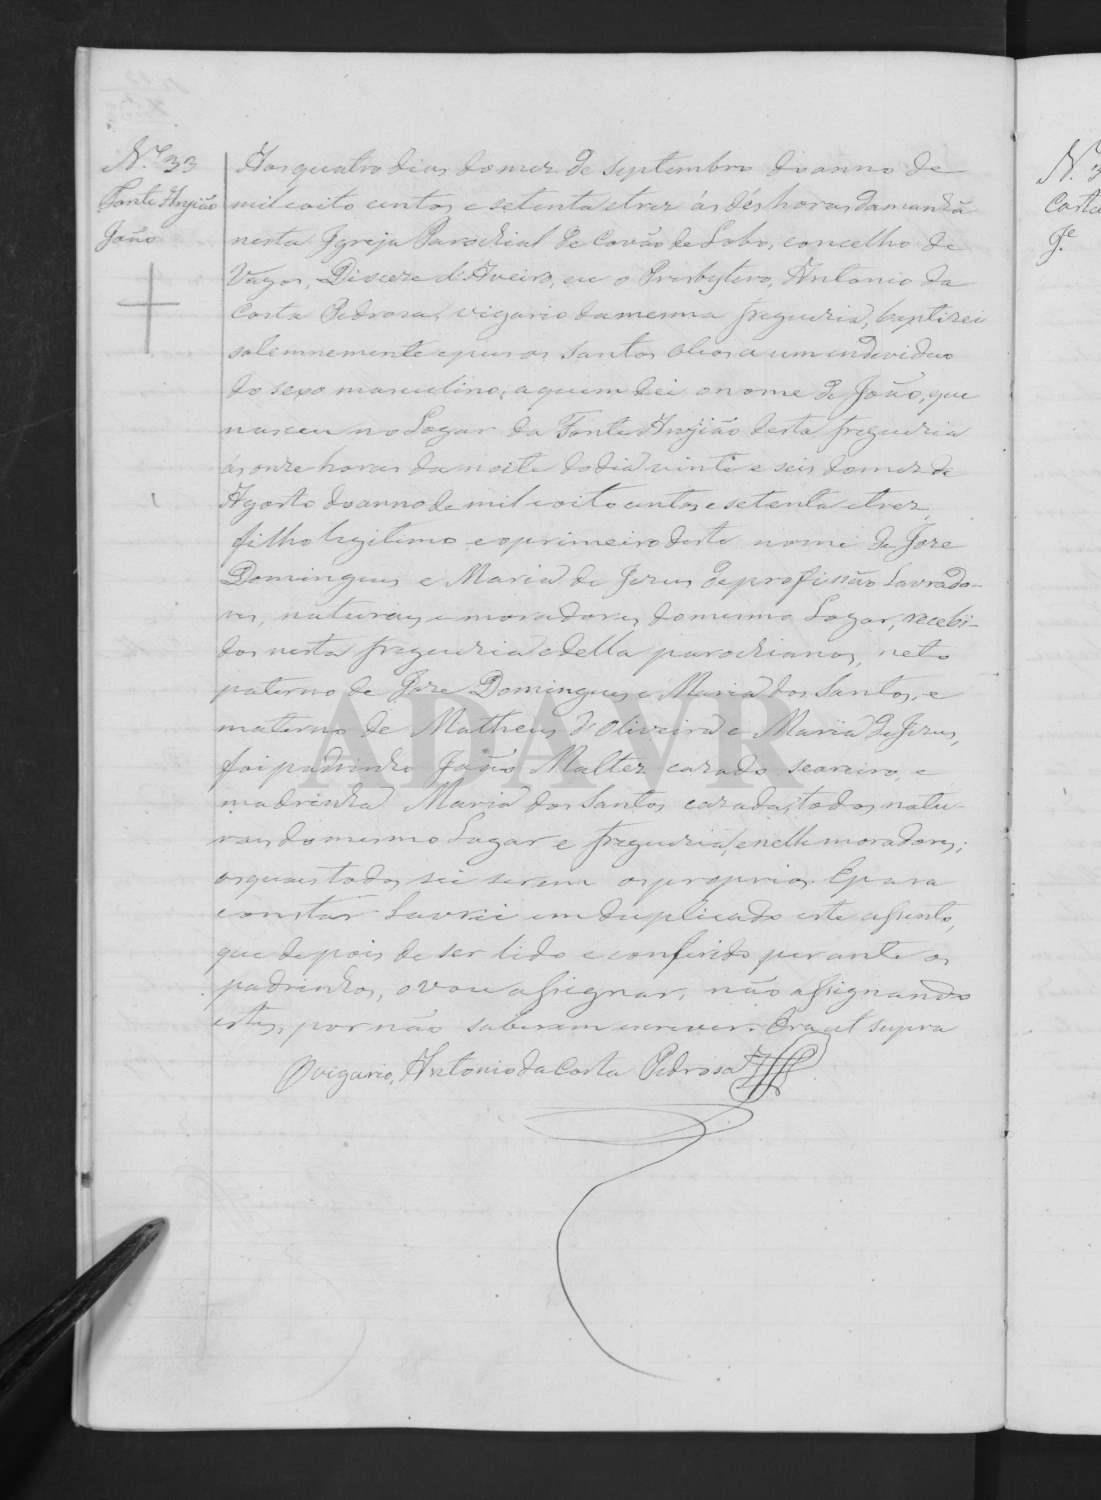 Nº 33
Fonte Angião
João
Aos quatro dias do mez de Septembro do anno de
mil e oito centos e setenta e trez ás dés horas da manhã
nesta Igreja Parochial de Covão de Lobo, concelho de
Vagos, Diocere d'Aveiro, eu o Presbytero, Antonio da
Costa Pedrosa, vigario da mesma freguezia, baptizei
solemnemente e puz os Santos Oleos a um individuo
do sexo masculino; a quem dei o nome de João, que
nasceu no Logar da Fonte Angião desta freguezia
ás onze horas da noite do dia vinte e seis do mez de
Agosto do anno de mil e oito centos e setenta e trez,
filho legitimo e o primeiro deste nome de Joze
Domingues e Maria de Jezus de profissão Lavrado-
res, naturaes e moradores do mesmo Logar, recebi-
dos nesta freguezia e della parochianos, neto
paterno de Joze Domingues e Maria dos Santos, e
materno de Matheus d'Oliveira e Maria de Jezus,
foi padrinho João Malter cazado, seareiro, e
madrinha Maria dos Santos cazada, todos natu-
raes do mesmo Logar e freguezia, e nelle moradores;
os quaes todos sei serem os proprios E para
constar Lavrei em duplicado este assento,
que depois de ser lido e conferido perante os
padrinhos, o vou assignar, não assignando
estes, por não saberem escrever. Era ut supra
O vigario, Antonio da Costa Pedrosa
ADAVR
Nº 3
Costa
Je